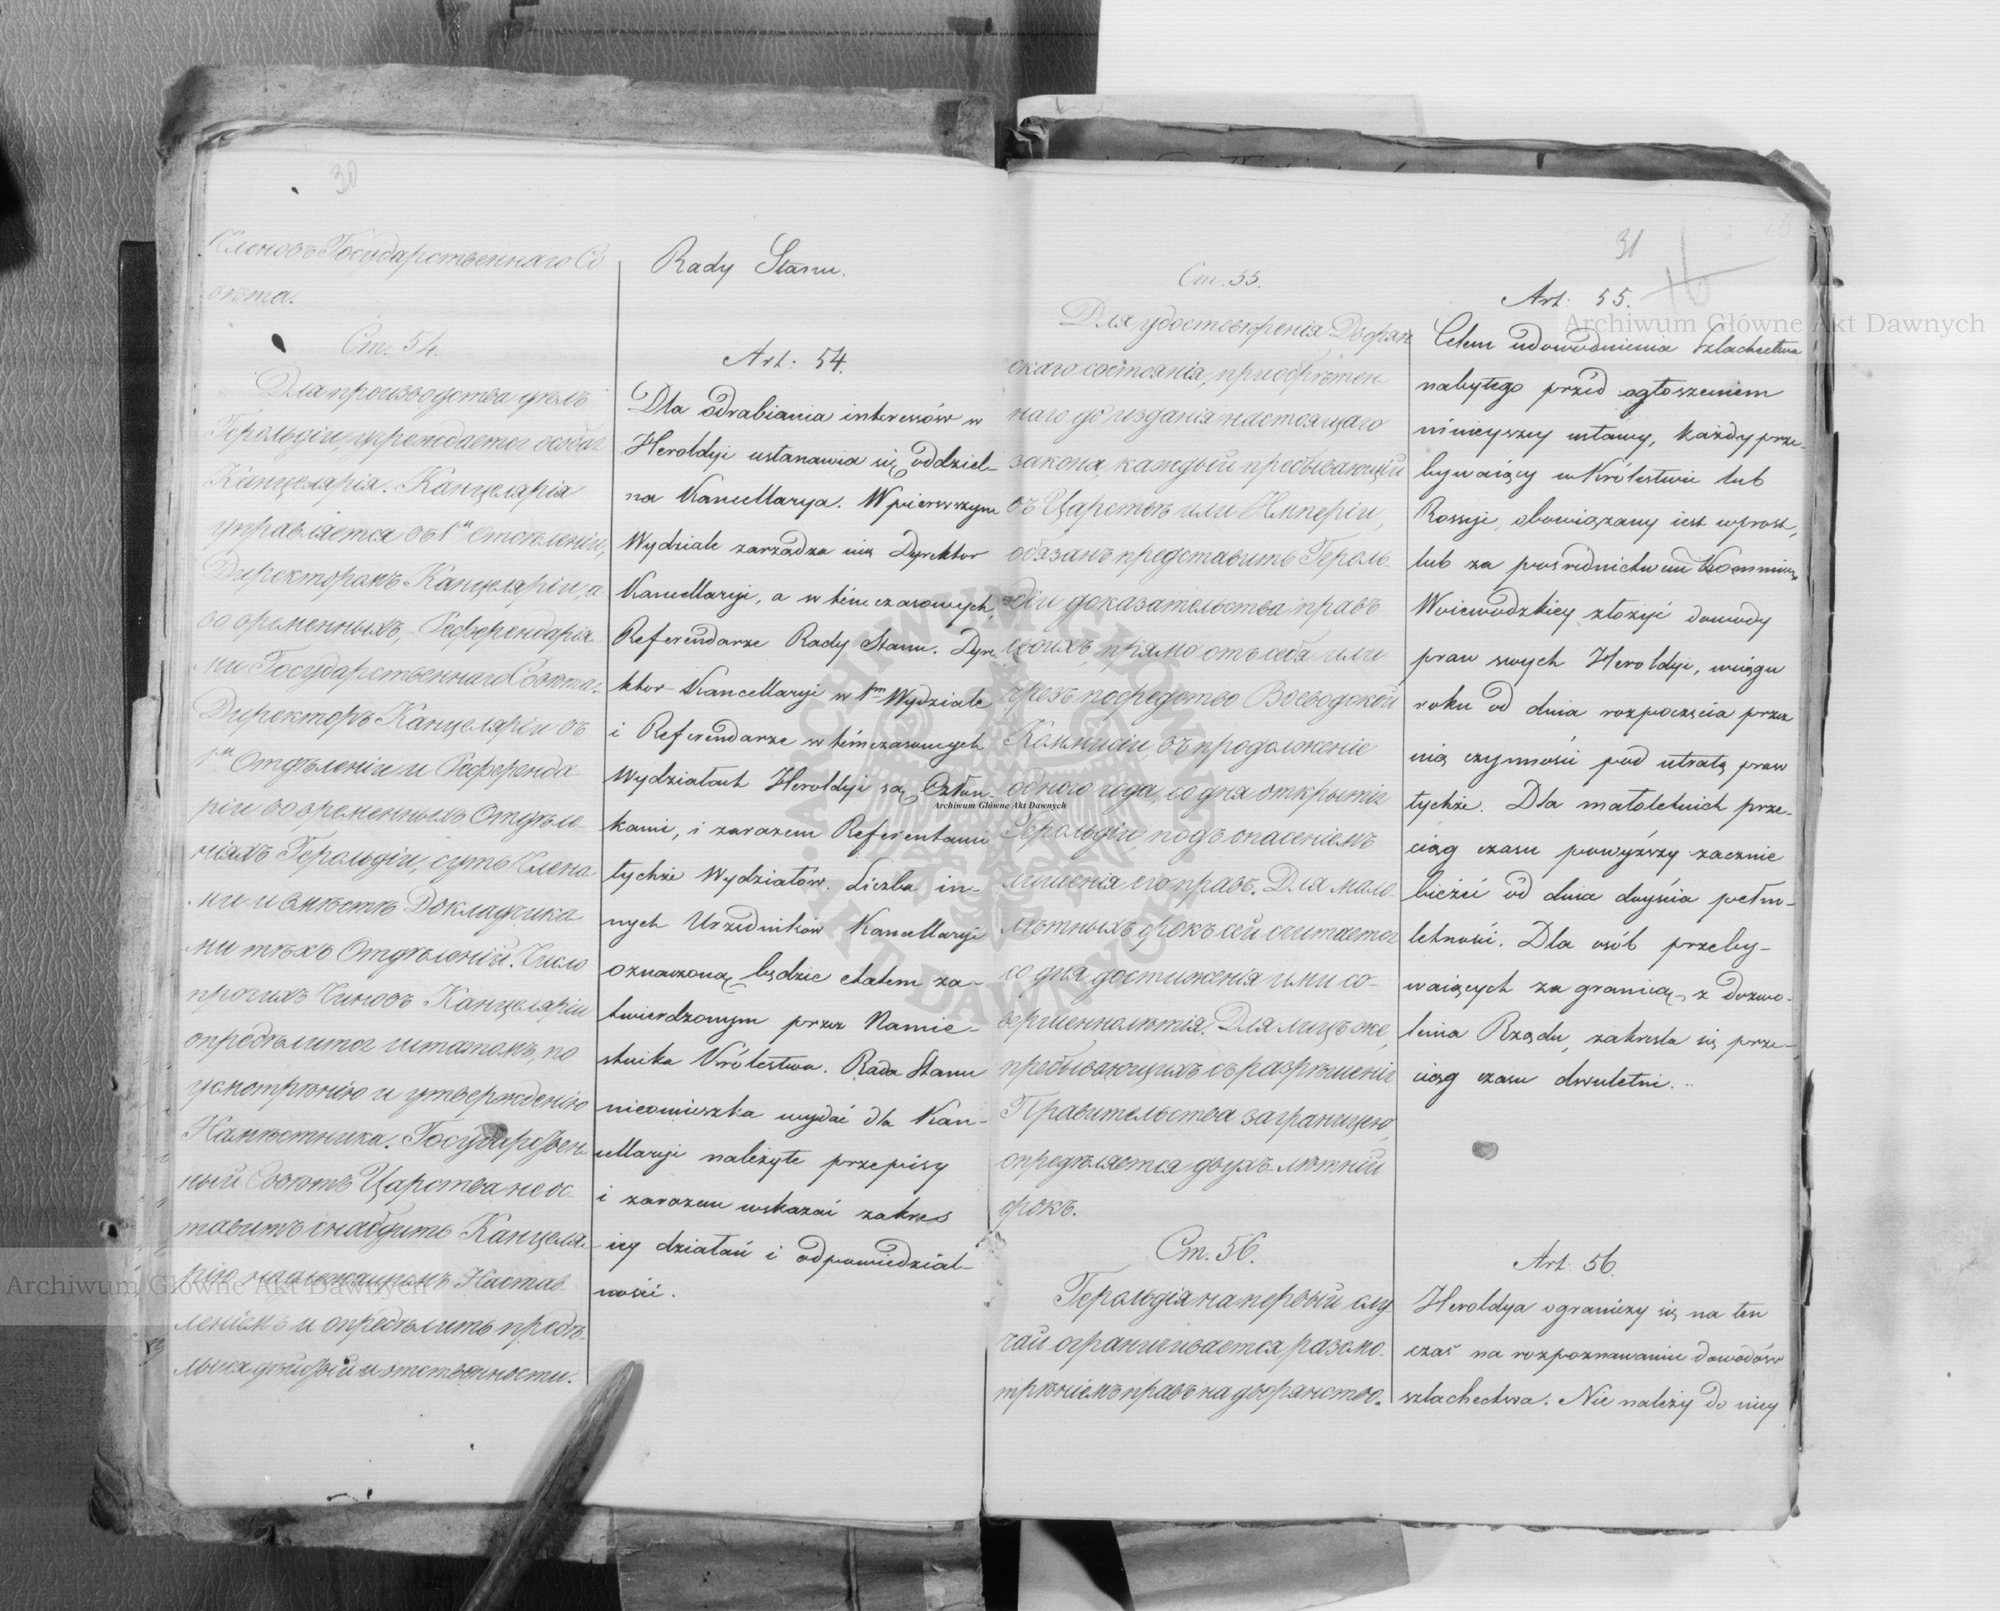 30
Членовъ Государственнаго Со
вѣта.
Ст. 54.
Для производства дѣлъ
Герольдіи, учреждается особая
Канцелярія. Канцелярія
управляется въ 1мъ Отдѣленіи,
Директоромъ Канцеляріи, а
во временныхъ, Референдарія-
ми Государственнаго Совѣта.
Директоръ Канцеляріи въ
1мъ Отдѣленіи и Референда-
ріи во временныхъ Отдѣле-
ніяхъ Герольдіи, суть Члена-
ми и вмѣстѣ Докладчика
ми тѣхъ Отдѣленій. Число
прочихъ Чиновъ Канцеляріи
опредѣлится штатомъ, по
усмотрѣнію и утвержденію
Намѣстника. Государствен
ный Совѣтъ Царства не ос-
тавитъ снабдить Канцеля-
рію надлежащимъ Настав-
леніемъ и опредѣлить предѣ-
лы ея дѣйствій и отвѣтственности.
Rady Stanu.
Art: 54.
Dla odrabiania interessów w
Heroldyi ustanawia się oddziel-
na Kancellarya. W pierwszym
Wydziale zarządza nią Dyrektor
Kancellaryi, a w témczasowych,
Referendarze Rady Stanu. Dyre-
ktor Kancellaryi w 1m Wydziale
i Referendarze w témczasowych
Wydziałach Heroldyi są Człon-
kami, i zarazem Referentami
tychże Wydziałów. Liczba in-
nych Urzędników Kancellaryi
oznaczoną będzie etatem za-
twierdzonym przez Namie-
stnika Królestwa. Rada Stanu
nieomieszka wydać dla Kan-
cellaryi należyte przepisy
i zarazem wskazać zakres
iéy działań i odpowiedzial-
ności.
31
16
Ст. 55.
Для удостовѣренія Дворян
скаго состоянія, пріобрѣтен-
наго до изданія настоящаго
закона, каждый пребывающій
въ Царствѣ или Имперіи,
обязанъ представить Героль-
діи доказательства правъ
своихъ, прямо отъ себя или
чрезъ посредство Воеводской
Коммисіи, въ продолженіе
одного года, со дня открытія
Герольдіи, подъ опасеніемъ
лишенія его правъ. Для мало-
лѣтныхъ срокъ сей считается
со дня достиженія ими со-
вершеннолѣтія. Для лицъ же,
пребывающихъ съ разрѣшенія
Правительства заграницею,
опредѣляется двухъ-лѣтній
срокъ.
Ст. 56.
Герольдія на первый слу
чай ограничивается разсмо-
трѣніемъ правъ на дворянство.
Art: 55.
Celem udowodnienia Szlachectwa
nabytego przed ogłoszeniem
ninieyszey ustawy, każdy prze-
bywaiący w Królestwie lub
Rossyi, obowiązany iest wprost,
lub za pośrednictwem Kommissyi
Woiewodzkiey złożyć dowody
praw swych Heroldyi, wciągu
roku od dnia rozpoczęcia przez
nią czynności pod utratą praw
tychże. Dla małoletnich prze-
ciąg czasu powyższy zacznie
bieżéć od dnia doyścia pełno-
letności. Dla osób przeby-
waiących za granicą z dozwo-
lenia Rządu, zakreśla się prze-
ciąg czasu dwuletni.
Art: 56.
Heroldya ograniczy się na ten
czas na rozpoznawaniu dowodów
szlachectwa. Nie należy do niey
Archiwum Główne Akt Dawnych
Archiwum Główne Akt Dawnych
Archiwum Główne Akt Dawnych
ARCHIWUM GŁÓWNE AKT DAWNYCH